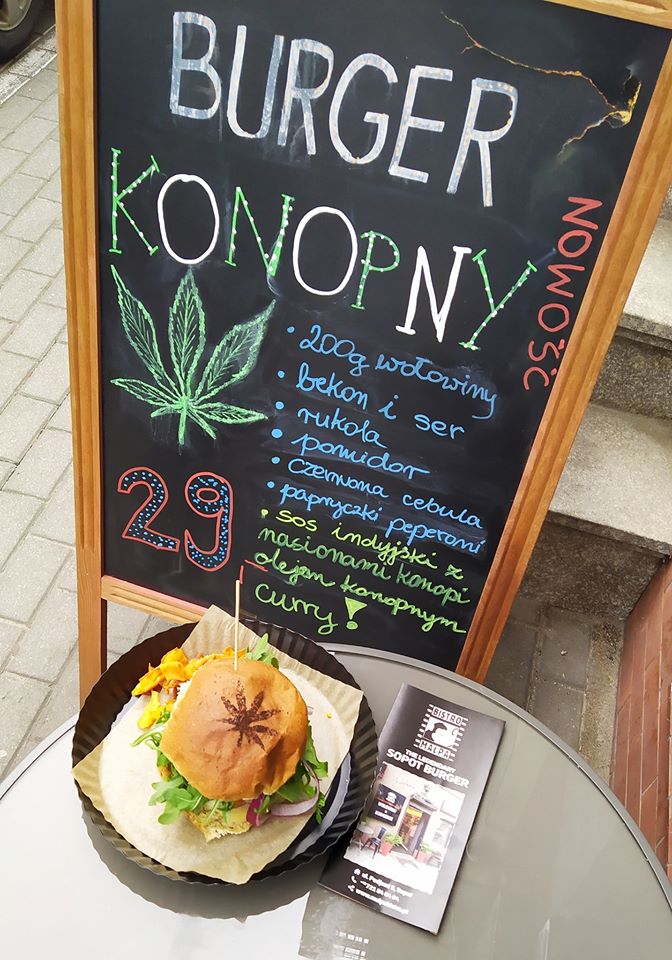 BURGER
KONOPNY
NOWOŚĆ
• 200g wołowiny
• bekon i ser
• rukola
• pomidor
• czerwona cebula
• papryczki peperoni
• sos indyjski z
nasionami konopi
olejem konopnym
curry!
29
BISTRO
MAŁPA
THE LEGENDARY
SOPOT BURGER